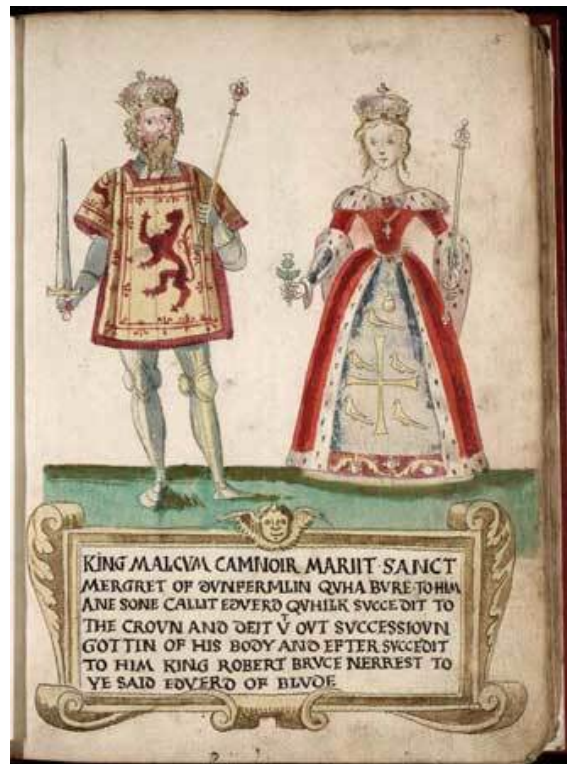 KING MALCVM CAMNOIR MARIIT SANCT
MERGRET OF DVNFERMLIN QVHA BVRE TO HIM
ANE SONE CALLIT EDVERD QVHILK SVCCEDIT TO
THE CROVN AND DEIT Vᵗ OVT SVCCESSIOVN
GOTTIN OF HIS BODY AND EFTER SVCCEDIT
TO HIM KING ROBERT BRVCE NERREST TO
YE SAID EDVERD OF BLVDE